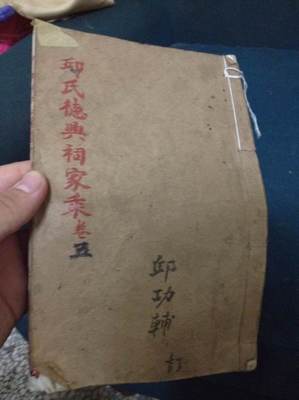 邱氏德興祠家乘卷五
邱功輔訂